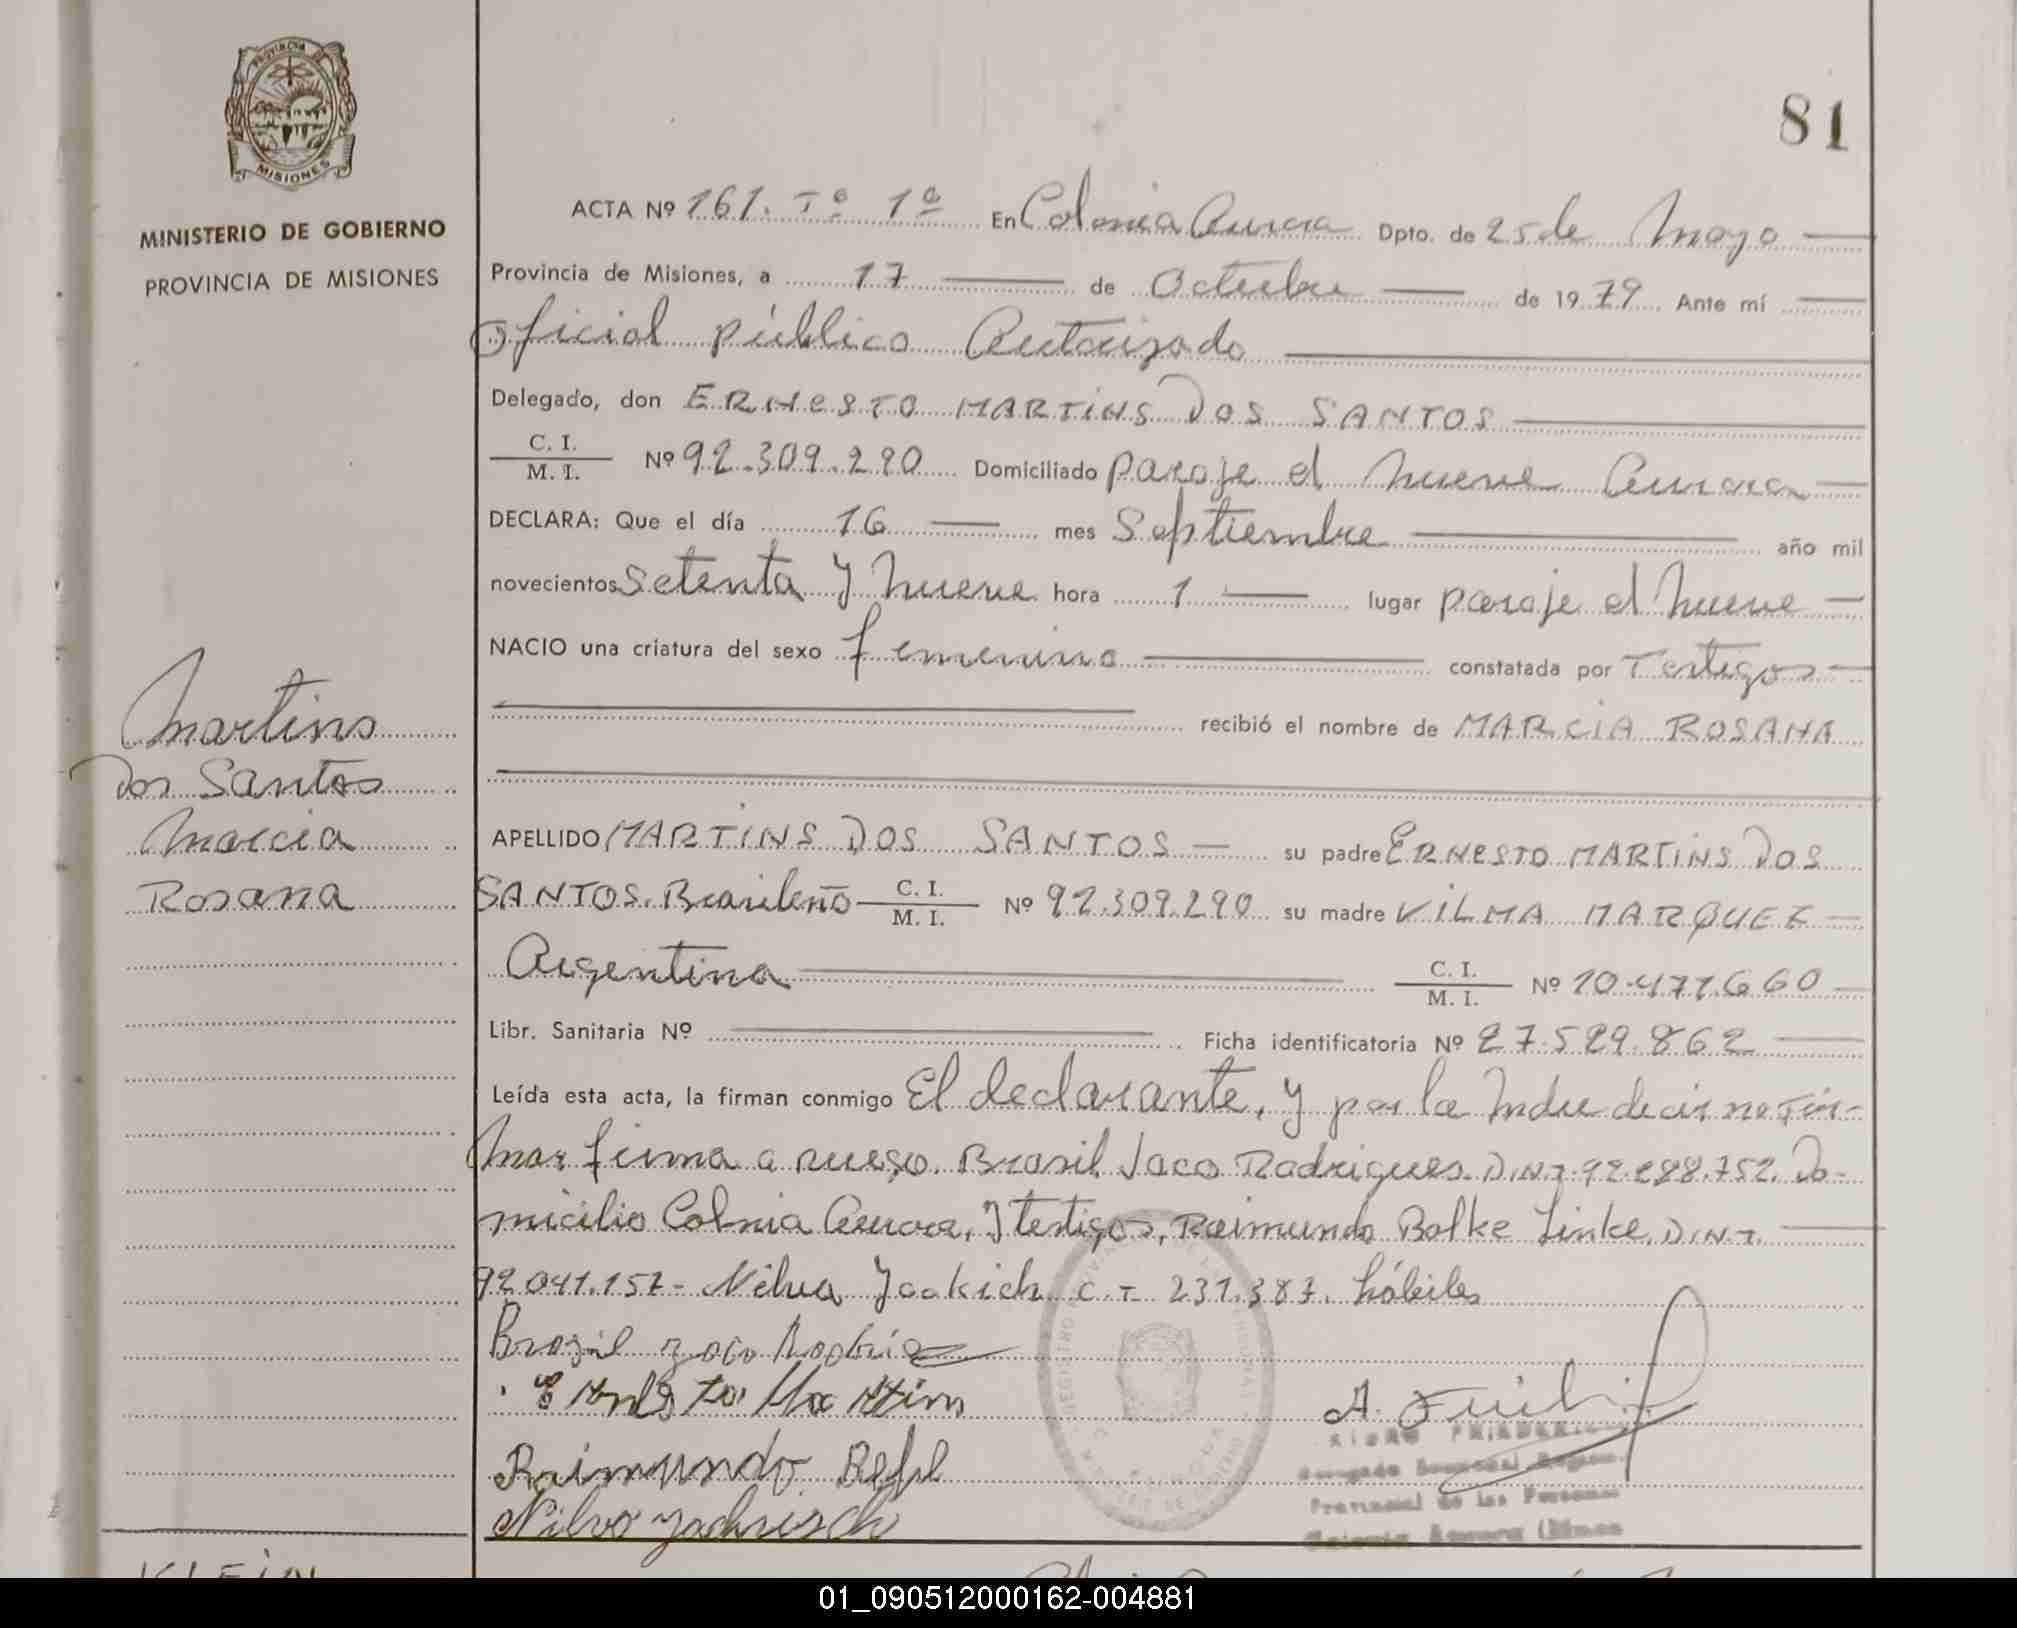 PROVINCIA DE
MISIONES
MINISTERIO DE GOBIERNO
PROVINCIA DE MISIONES
81
ACTA Nº 161. Tº 1º En Colonia Aurora Dpto. de 25 de Mayo
Provincia de Misiones, a 17 de Octubre de 1979 Ante mí
Oficial público Autorizado
Delegado, don ERNESTO MARTINS DOS SANTOS
C. I.
M. I. Nº 92.309.290 Domiciliado paraje el nueve Aurora
DECLARA: Que el día 16 mes Septiembre año mil
novecientos setenta y nueve hora 1 lugar paraje el nueve
NACIO una criatura del sexo femenino constatada por Testigos
recibió el nombre de MARCIA ROSANA
Martins
Dos Santos
Marcia
Rosana
APELLIDO MARTINS DOS SANTOS su padre ERNESTO MARTINS DOS
SANTOS. Brasileño C. I.
M. I. Nº 92.309.290 su madre VILMA MARQUEZ
Argentina C. I.
M. I. Nº 10.471.660
Libr. Sanitaria Nº Ficha identificatoria Nº 27.529.862
Leída esta acta, la firman conmigo El declarante, y por la Madre decir no fir-
mar firma a ruego. Brasil Jaco Rodrigues. D.N.I. 92.288.752. Do-
micilio Colonia Aurora, y testigos, Raimundo Bolke Linke, D.N.I.
92.041.157- Nélva Jackich C.I. 231.387. hábiles
Brazil
Ernesto Martim
Raimundo
Nilvo
Provincial de las Personas
KLEIN
01_090512000162-004881